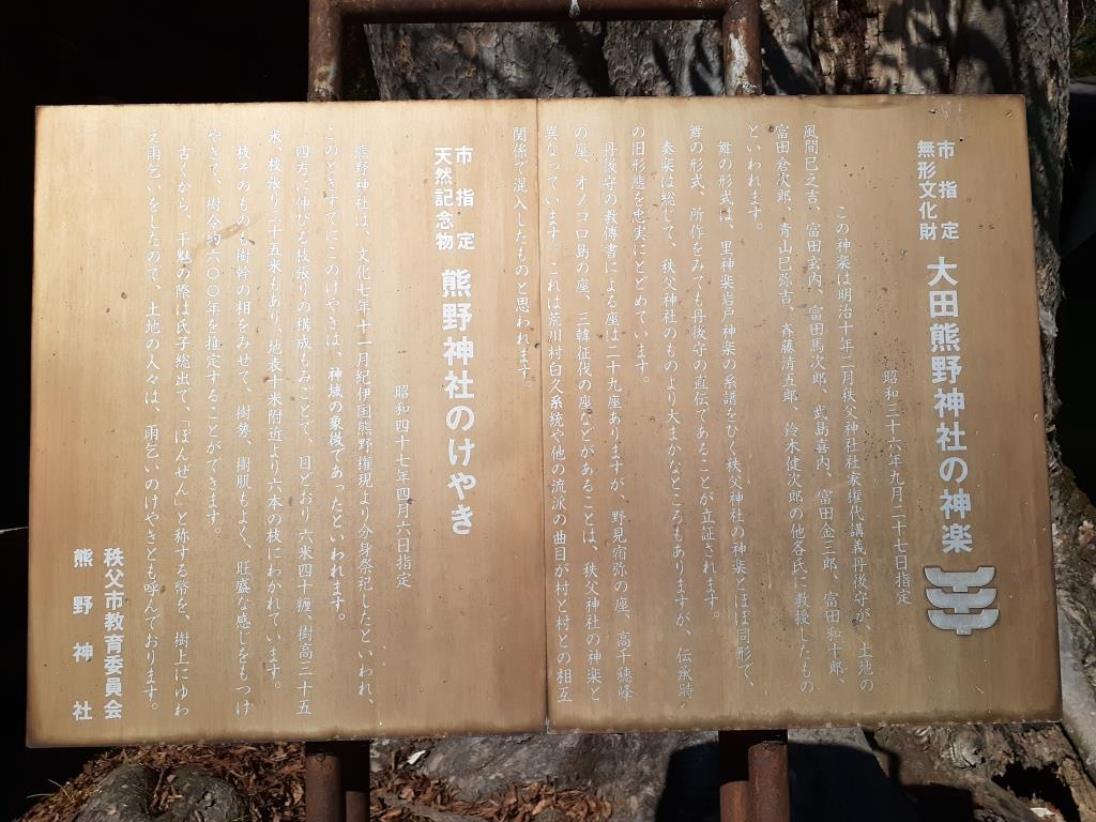 市指定
無形文化財
大田熊野神社の神楽
昭和三十六年九月二十七日指定
この神楽は明治十年二月秩父神社社家復代講義丹後守が、土地の
風間巳之吉、富田玄内、富田馬次郎、武島喜内、富田金三郎、富田和十郎、
富田倉次郎、青山巳弥吉、斉藤清五郎、鈴木健次郎の他各氏に教授したもの
といわれます。
舞の形式は、里神楽岩戸神楽の系譜をひく秩父神社の神楽とほぼ同形で、
舞の形式、所作をみても丹後守の直伝であることが立証されます。
奏楽は総じて、秩父神社のものより大まかなところもありますが、伝承時
の旧形態を忠実にとどめています。
丹後守の教傳書による座は二十九座ありますが、野見宿弥の座、高千穂峰
の座、オノコロ島の座、三韓征伐の座などがあることは、秩父神社の神楽と
異なっています。これは荒川村白久系統や他の流派の曲目が村と村との相互
関係で混入したものと思われます。
市指定
天然記念物
熊野神社のけやき
昭和四十七年四月六日指定
熊野神社は、文化七年十一月紀伊国熊野権現より分身祭祀したといわれ、
このときすでにこのけやきは、神域の象徴であったといわれます。
四方に伸びる枝張りの構成もみごとで、目どおり六米四十糎、樹高三十五
米、枝張り三十五米もあり、地表十米附近より六本の枝にわかれています。
枝そのものも樹幹の相をみせて、樹勢、樹肌もよく、旺盛な感じをもつけ
やきで、樹令約六〇〇年を推定することができます。
古くから、干魃の際は氏子総出で、「ぼんぜん」と称する幣を、樹上にゆわ
え雨乞いをしたので、土地の人々は、雨乞いのけやきとも呼んでおります。
秩父市教育委員会
熊野神社